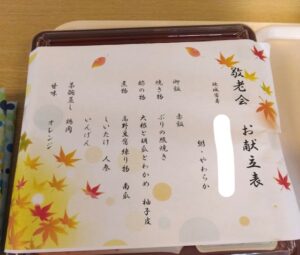 敬老会　お献立表
粥・やわらか
御飯　赤飯
焼き物　ぶりの照焼き
酢の物　大根と胡瓜とわかめ　柚子皮
煮物　高野豆腐　練り物　南瓜
しいたけ　人参
いんげん
茶碗蒸し　鶏肉
甘味　オレンジ